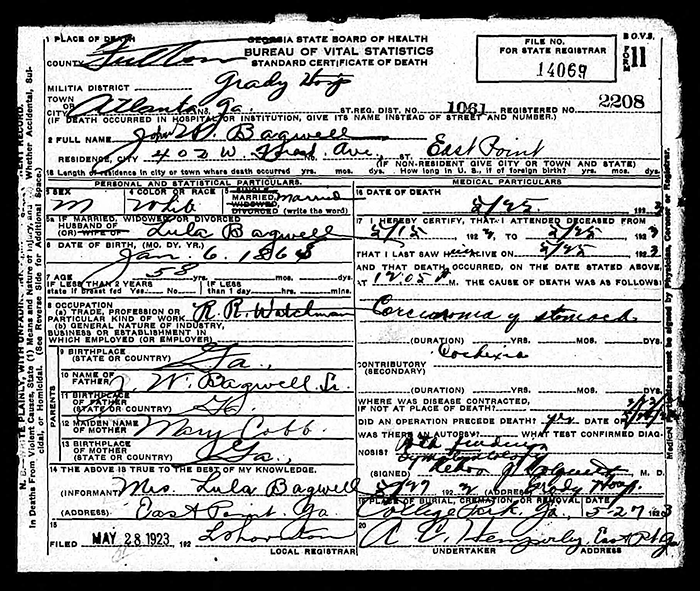 GEORGIA STATE BOARD OF HEALTH
BUREAU OF VITAL STATISTICS
STANDARD CERTIFICATE OF DEATH
FILE NO.
FOR STATE REGISTRAR
14069
B.O.V.S.
FORM 11
1 PLACE OF DEATH
COUNTY Fulton
MILITIA DISTRICT Grady Hosp
TOWN OR CITY Atlanta Ga. ST. REG. DIST. NO. 1061 REGISTERED NO. 2208
(IF DEATH OCCURRED IN HOSPITAL OR INSTITUTION, GIVE ITS NAME INSTEAD OF STREET AND NUMBER.)
2 FULL NAME John W. Bagwell
RESIDENCE, CITY 402 W. Ave. ST. East Point
(IF NON-RESIDENT GIVE CITY OR TOWN AND STATE)
Length of residence in city or town where death occurred yrs. mos. dys. How long in U. S., if of foreign birth? yrs. mos. dys.
PERSONAL AND STATISTICAL PARTICULARS.
3 SEX M
4 COLOR OR RACE White
5 SINGLE MARRIED, WIDOWED OR DIVORCED (write the word) Married
5a IF MARRIED, WIDOWED OR DIVORCED
HUSBAND OF (OR) WIFE OF Lula Bagwell
6 DATE OF BIRTH, (MO. DY. YR.)
Jan. 6. 1868
7 AGE 55 yrs. mos. dys.
IF LESS THAN 2 YEARS state if breast fed Yes No
IF LESS than 1 day hrs. min.
8 OCCUPATION
(a) TRADE, PROFESSION OR PARTICULAR KIND OF WORK R. R. Watchman
(b) GENERAL NATURE OF INDUSTRY, BUSINESS OR ESTABLISHMENT IN WHICH EMPLOYED (OR EMPLOYER)
PARENTS
9 BIRTHPLACE (STATE OR COUNTRY) Ga.
10 NAME OF FATHER J. W. Bagwell Sr.
11 BIRTHPLACE OF FATHER (STATE OR COUNTRY) Ga.
12 MAIDEN NAME OF MOTHER Mary Cobb
13 BIRTHPLACE OF MOTHER (STATE OR COUNTRY) Ga.
14 THE ABOVE IS TRUE TO THE BEST OF MY KNOWLEDGE.
(INFORMANT) Mrs. Lula Bagwell
(ADDRESS) East Point Ga
15 FILED MAY 28 1923, 192
LOCAL REGISTRAR
MEDICAL PARTICULARS.
16 DATE OF DEATH
5/25 1923
17 I HEREBY CERTIFY, THAT I ATTENDED DECEASED FROM
5/15 1923, TO 5/25 1923
THAT I LAST SAW him ALIVE ON 5/25 1923
AND THAT DEATH OCCURRED, ON THE DATE STATED ABOVE,
AT 12.05 M. THE CAUSE OF DEATH WAS AS FOLLOWS:
Carcinoma of stomach
(DURATION) YRS. MOS. DYS.
CONTRIBUTORY (SECONDARY) Cachexia
(DURATION) YRS. MOS. DYS.
WHERE WAS DISEASE CONTRACTED, IF NOT AT PLACE OF DEATH?
DID AN OPERATION PRECEDE DEATH? yes DATE OF
WAS THERE AN AUTOPSY? WHAT TEST CONFIRMED DIAGNOSIS?
(SIGNED) M. D.
5/27 1923 (ADDRESS) Grady Hosp.
19 PLACE OF BURIAL, CREMATION, OR REMOVAL DATE
College Park, Ga. 5-27 1923
20 A. C. Hemperley, East Pt Ga
UNDERTAKER ADDRESS